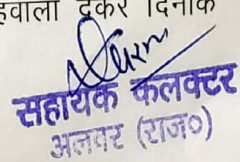 हवाला देकर दिनांक
सहायक कलक्टर
अलवर (राज०)